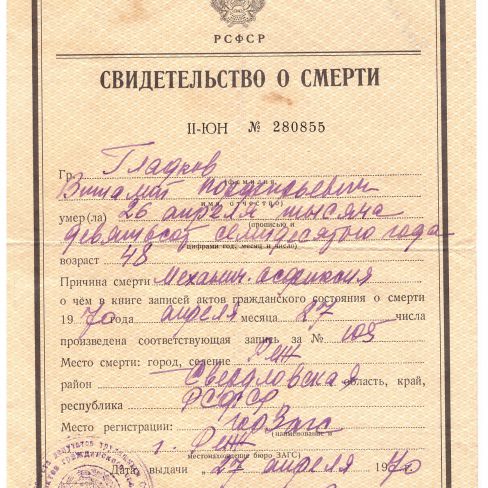 РСФСР
СВИДЕТЕЛЬСТВО О СМЕРТИ
II-ЮН № 280855
Гр. Гладков
(фамилия,
Виталий
имя, отчество)
умер(ла) 26 апреля тысяча
(прописью и
девятьсот семидесятого года
цифрами год, месяц и число)
возраст 48
Причина смерти Механич. асфиксия
о чём в книге записей актов гражданского состояния о смерти
1970 года апреля месяца 27 числа
произведена соответствующая запись за № 105
Место смерти: город, селение Реж
район Свердловская область, край,
республика РСФСР
Место регистрации: горЗагс
(наименование и
г. Реж
местонахождение бюро ЗАГС)
Дата выдачи „ 27 апреля 1970